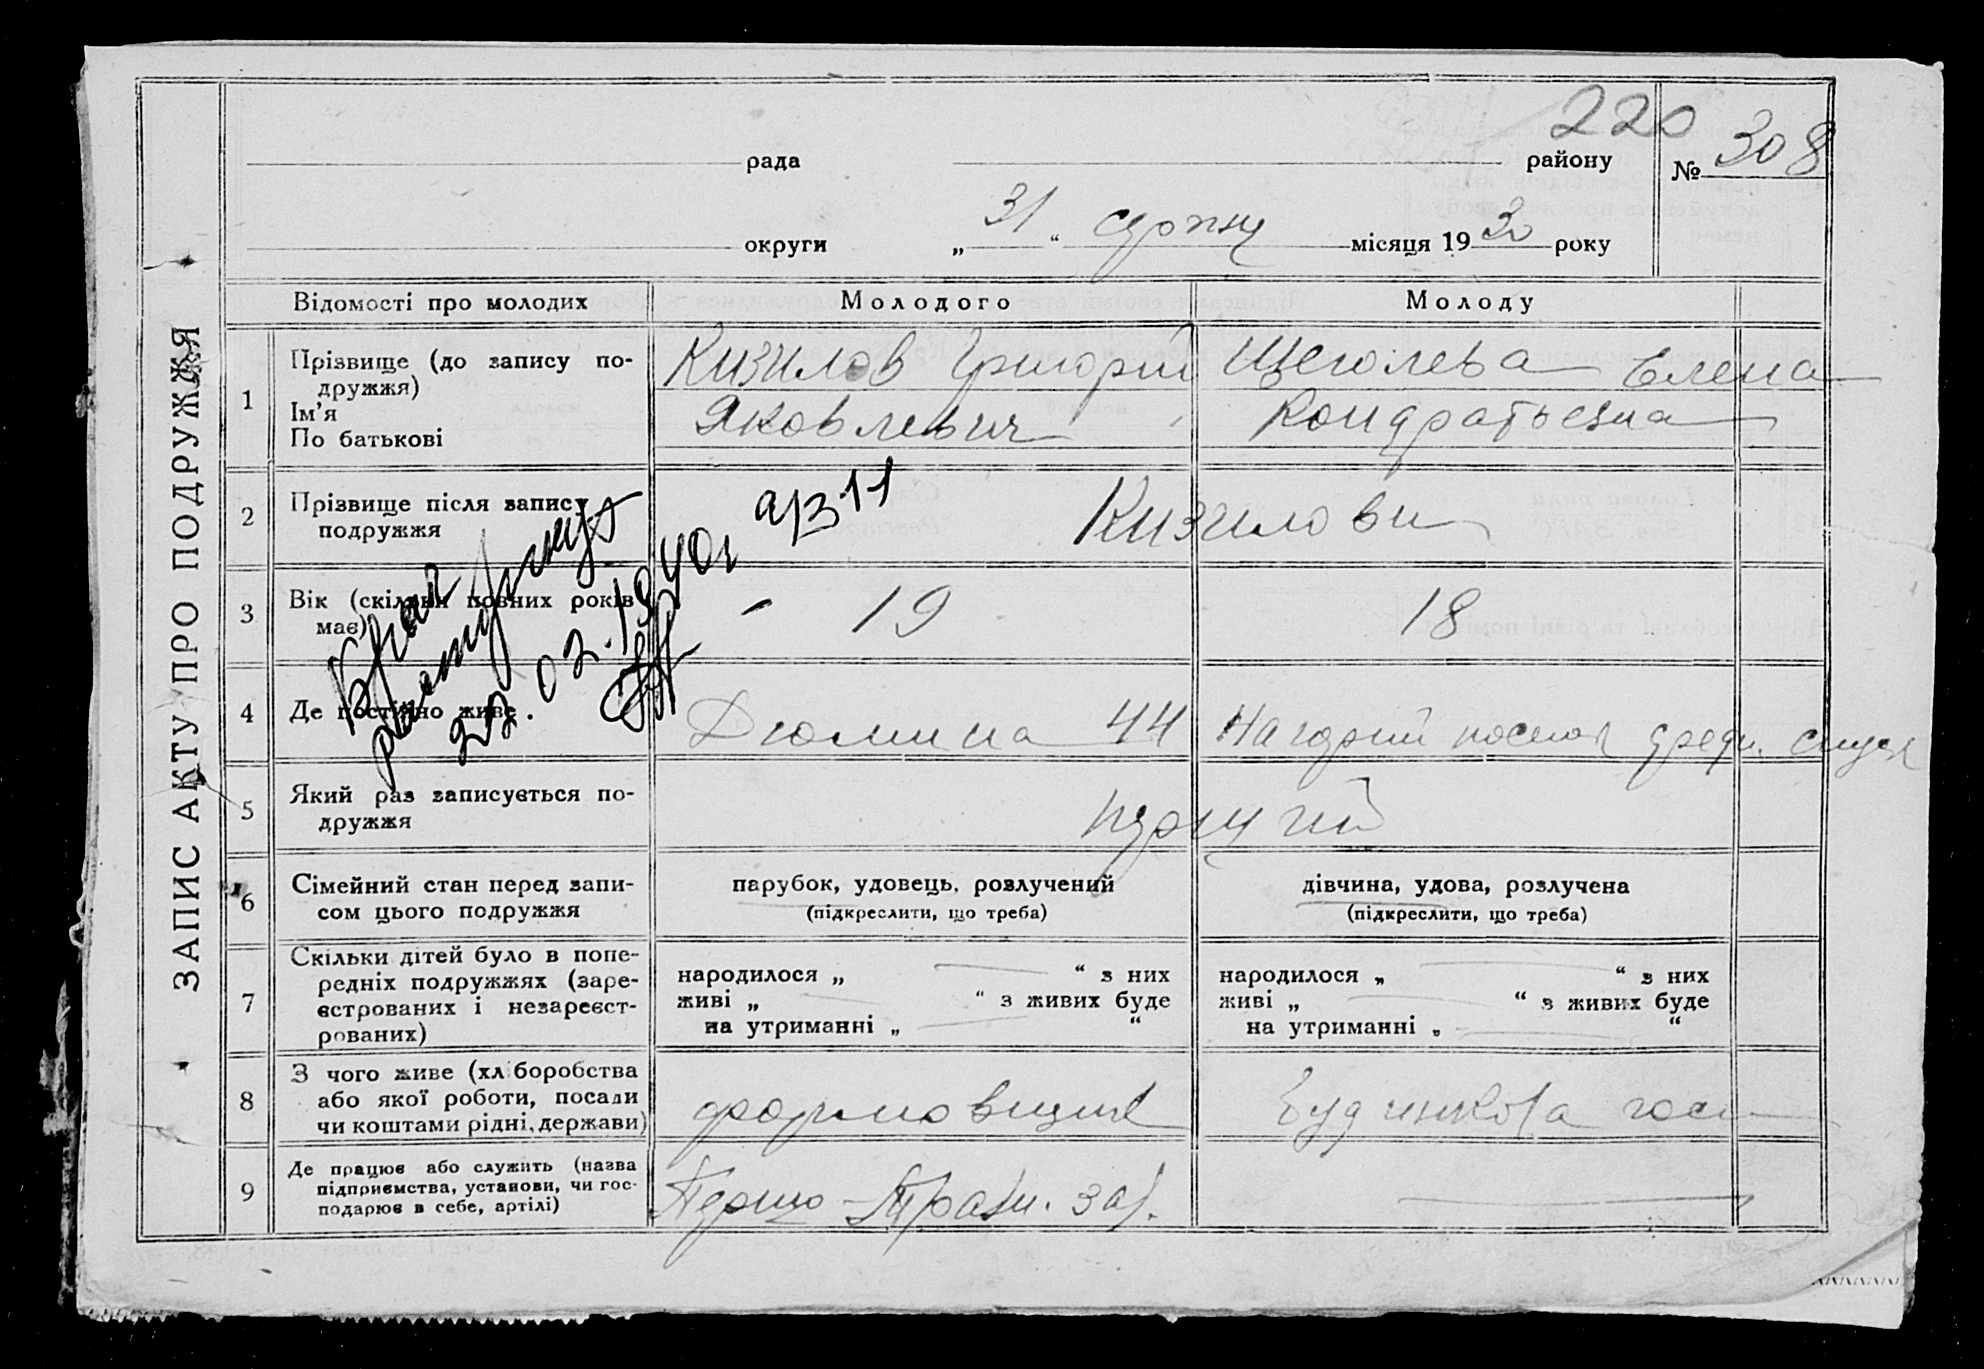 220
рада района району № 308
округи „ 31 “ серпня місяця 1930 року
ЗАПИС АКТУ ПРО ПОДРУЖЖЯ
Відомості про молодих Молодого Молоду
1 Прізвище (до запису по-
дружжя)
Ім’я
По батькові
Кизилов Григорий
Яковлевич
Щеголева Елена
Кондратьевна
2 Прізвище після запису
подружжя
Кизилови
3 Вік (скільки повних років
має)
19 18
4 Де постійно живе.
Дюмина 44 Нагорний посьолок
Брак
расторгнут
22.02.1940г
5 Який раз записується по-
дружжя
перший
6 Сімейний стан перед запи-
сом цього подружжя
парубок, удовець, розлучений
(підкреслити, що треба)
дівчина, удова, розлучена
(підкреслити, що треба)
7 Скільки дітей було в попе-
редніх подружжях (заре-
єстрованих і незареєст-
рованих)
народилося „ “ з них
живі „ “ з живих буде
на утриманні „ “
народилося „ “ з них
живі „ “ з живих буде
на утриманні „ “
8 З чого живе (хліборобства
або якої роботи, посади
чи коштами рідні, держави)
формовщик
Будинкова госп
9 Де працює або служить (назва
підприємства, установи, чи гос-
подарює в себе, артілі)